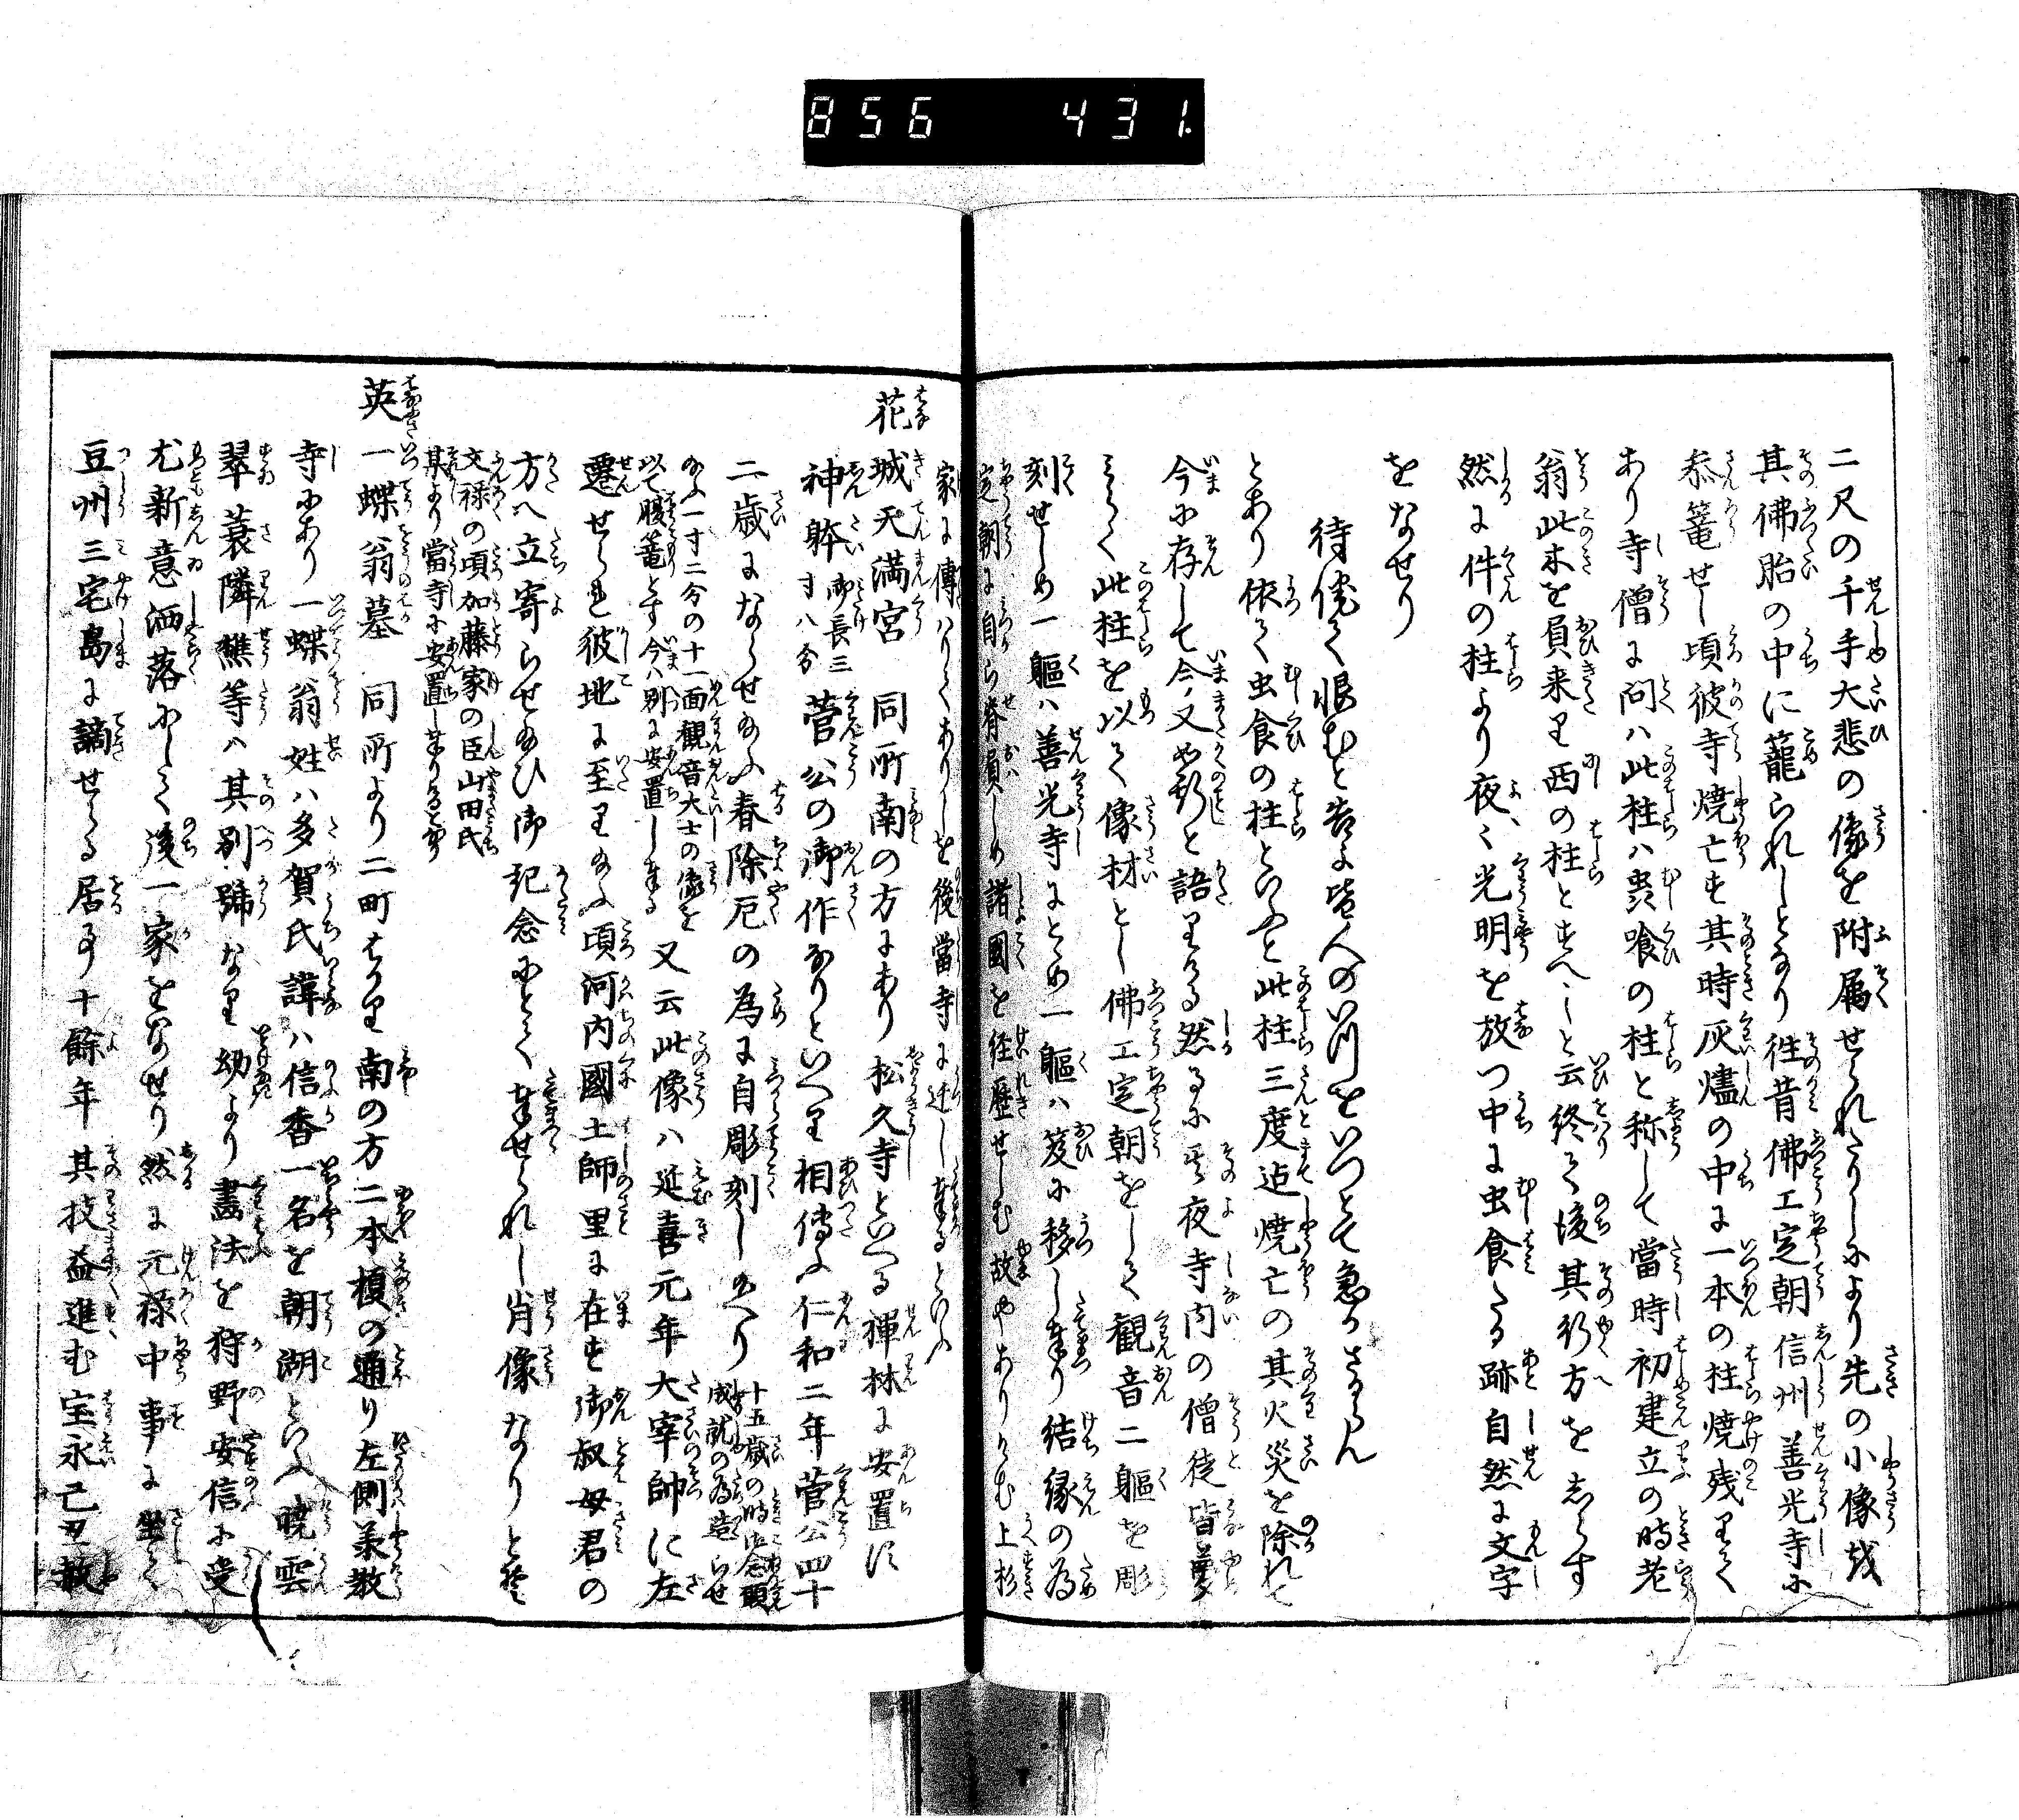 856 431.
二尺の千手大悲の像を附属せられたりしにより先の小像越
其佛胎の中に籠られしとなり往昔佛工定朝信州善光寺に
参篭せし頃彼寺焼亡す其時灰燼の中に一本の柱焼残りて
あり寺僧に問ハ此柱ハ虫喰の柱と称して當時初建立の時老
翁此木を負来り西の柱とすへしと云終て後其行方をしらす
然に件の柱より夜々光明を放つ中に虫食たる跡自然に文字
をなせり
待侘て恨むと告よ皆人のいつをいつとて急かさるらん
とあり依て虫食の柱といふと此柱三度迠焼亡の其火災を除れて
今に存して今又如斯と語りける然るに其夜寺内の僧徒皆夢
みらく此柱を以て像材とし佛工定朝をして観音二軀を彫
刻せしめ一軀ハ善光寺にとゝめ一軀ハ笈に移し奉り結縁の為
定朝に自ら脊負しめ諸國を経歴せしむ故やありけむ上杉
家に傳ハりてありしを後當寺に迁し奉るといふ
花城天満宮 同所南の方にあり松久寺といへる禅林に安置す
神躰御長三寸八分菅公の御作なりといへり相傳ふ仁和二年菅公四十
二歳にならせ給ふ春除厄の為に自彫刻し給へり十五歳の時御念願成就の為造らせ
給ふ一寸二分の十一面観音大士の像を以て腹篭とす今ハ別に安置し奉る又云此像ハ延喜元年大宰帥に左
遷せられ彼地に至り給ふ頃河内國土師里に在す御叔母君の
方へ立寄らせ給ひ御記念にとて奉せられし肖像なりと云
文禄の頃加藤家の臣山田氏某より當寺に安置し奉りると云
英一蝶翁墓 同所より二町はかり南の方二本榎の通り左側承教
寺にあり一蝶翁姓ハ多賀氏諱ハ信香一名を朝湖といふ暁雲
翠蓑隣樵等ハ其別號なり幼より畫法を狩野安信に受
尤新意洒落にして後一家をなせり然に元禄中事に坐して
豆州三宅島に謫せらる居事十餘年其技益進む宝永己丑赦